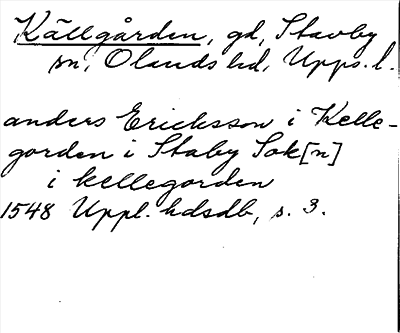 Källgården, gd, Stavby
sn, Olands hd, Upps. l.
anders Ericksson i Kelle-
gorden i Staby Sok[n]
i kellegorden
1548 Uppl. hdsdb, s. 3.